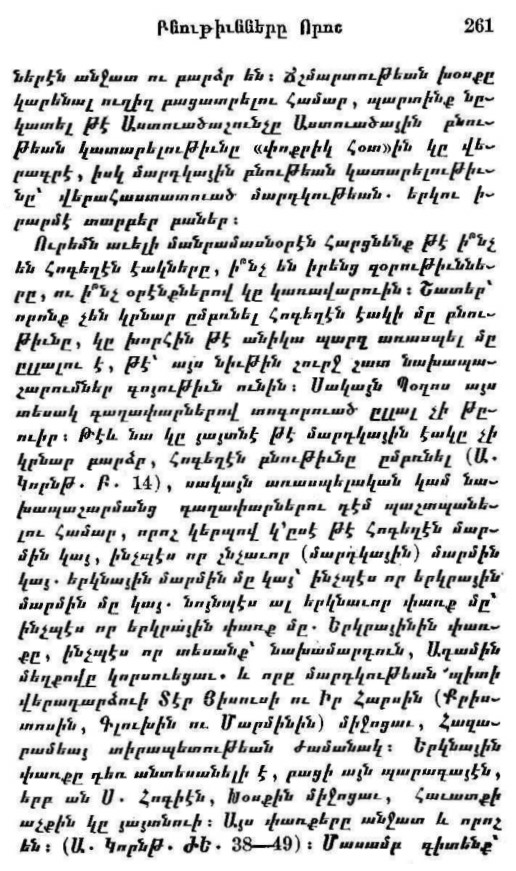 Բնութիւնները Որոշ 261
ներէն անջատ ու բարձր են։ Ճշմարտութեան խօսքը
կարենալ ուղիղ բացատրելու համար, պարտինք նը-
կատել թէ Աստուածաշունչը Աստուածային բնու-
թեան կատարելութիւնը «փոքրիկ հօտ»ին կը վե-
րագրէ, իսկ մարդկային բնութեան կատարելութիւ-
նը՝ վերահաստատուած մարդկութեան․ երկու ի-
րարմէ տարբեր բաներ։
Ուրեմն աւելի մանրամասնօրէն հարցնենք թէ ի՞նչ
են հոգեղէն էակները, ի՞նչ են իրենց զօրութիւննե-
րը, ու ի՞նչ օրէնքներով կը կառավարուին։ Շատեր՝
որոնք չեն կրնար ըմբռնել հոգեղէն էակի մը բնու-
թիւնը, կը խորհին թէ անիկա պարզ առասպել մը
ըլլալու է, թէ՝ այս նիւթին շուրջ շատ նախապա-
շարումներ գոյութիւն ունին։ Սակայն Պօղոս այս
տեսակ գաղափարներով տոգորուած ըլլալ չի թը-
ուիր։ Թէև նա կը յայտնէ թէ մարդկային էակը չի
կրնար բարձր, հոգեղէն բնութիւնը ըմբռնել (Ա․
Կորնթ․ Բ․ 14), սակայն առասպելական կամ նա-
խապաշարմանց գաղափարներու դէմ պաշտպանե-
լու համար, որոշ կերպով կ՚ըսէ թէ հոգեղէն մար-
մին կայ, ինչպէս որ շնչաւոր (մարդկային) մարմին
կայ․ երկնային մարմին մը կայ՝ ինչպէս որ երկրային
մարմին մը կայ․ նոյնպէս ալ երկնաւոր փառք մը՝
ինչպէս որ երկրային փառք մը․ Երկրայինին փառ-
քը, ինչպէս որ տեսանք՝ նախամարդուն, Ադամին
մեղքովը կորսուեցաւ․ և որը մարդկութեան պիտի
վերադարձուի Տէր Յիսուսի ու Իր Հարսին (Քրիս-
տոսին, Գլուխին ու Մարմինին) միջոցաւ, Հազա-
րամեայ տիրապետութեան ժամանակ։ Երկնային
փառքը դեռ անտեսանելի է, բացի այն պարագայէն,
երբ ան Ս․ Հոգիէն, Խօսքին միջոցաւ, հաւատքի
աչքին կը յայտնուի։ Այս փառքերը անջատ և որոշ
են։ (Ա․ Կորնթ․ ԺԵ․ 38—49)։ Մասամբ գիտենք՝